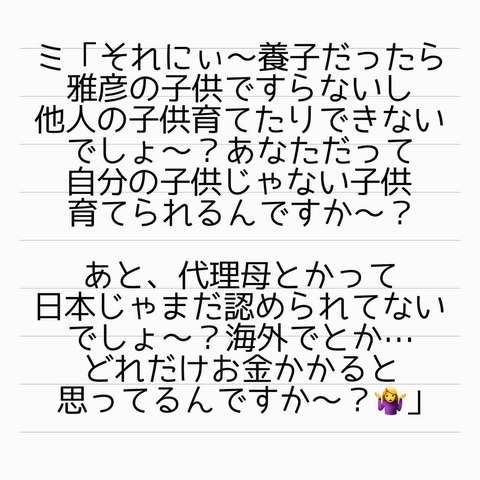 ミ「それにぃ〜養子だったら
雅彦の子供ですらないし
他人の子供育てたりできない
でしょ〜？あなただって
自分の子供じゃない子供
育てられるんですか〜？
あと、代理母とかって
日本じゃまだ認められてない
でしょ〜？海外でとか…
どれだけお金かかると
思ってるんですか〜？🤷‍♀️」